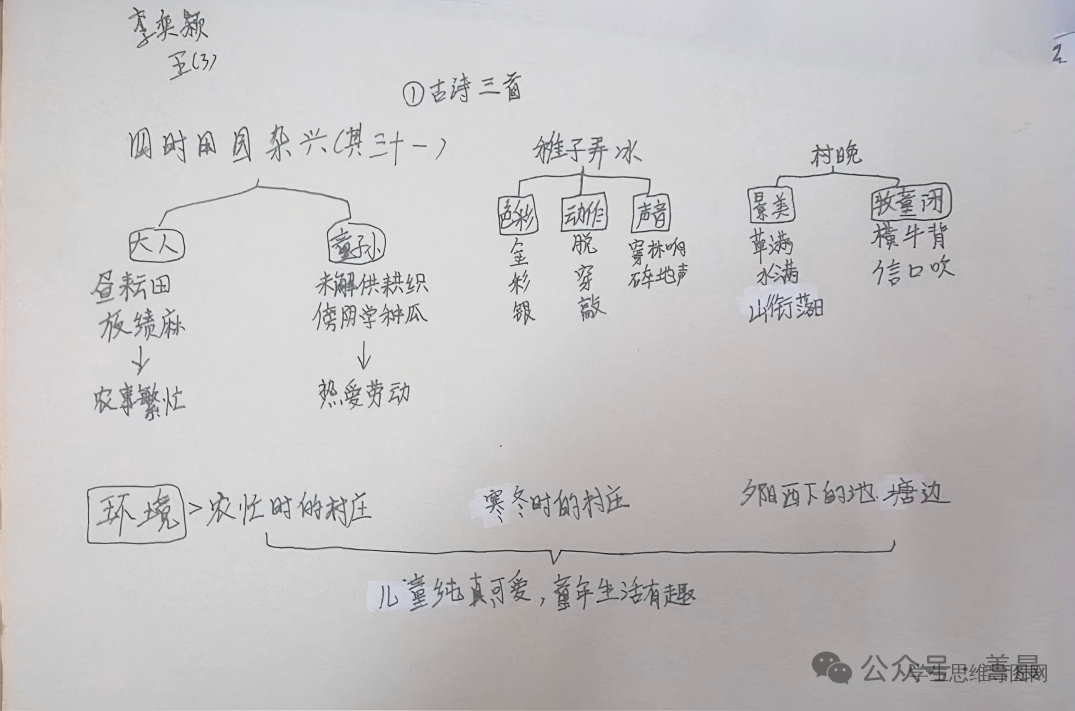 李奕颖
五(3)
2
①古诗三首
四时田园杂兴(其三十一)
大人
昼耘田
夜绩麻
农事繁忙
童子小
未解供耕织
傍阴学种瓜
热爱劳动
稚子弄冰
色彩
金
彩
银
动作
脱
穿
敲
声音
穿林响
碎地声
村晚
景美
草满
水满
山衔落日
牧童闭
横牛背
信口吹
环境>农忙时的村庄
寒冬时的村庄
夕阳西下的池塘边
儿童纯真可爱,童年生活有趣
公众号
学生思维导图网